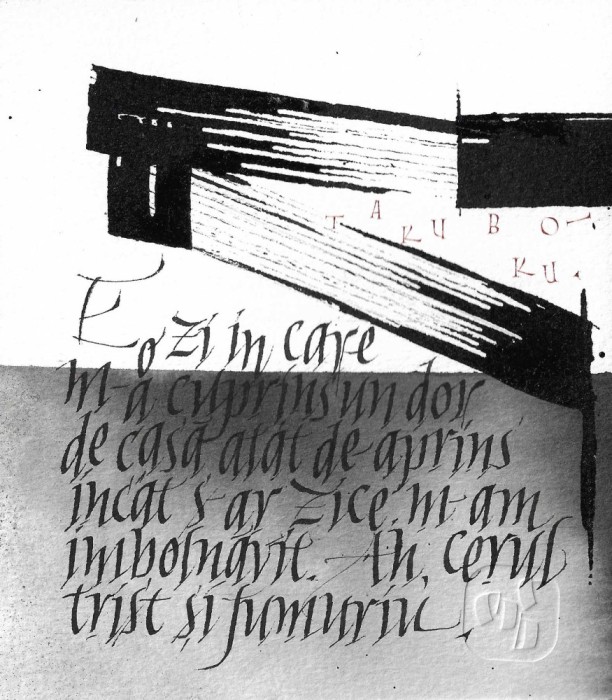 TAKUBO-
KU.
E o zi in care
m-a cuprins un dor
de casă atat de aprins
incat s-ar zice m-am
imbolnavit. Ah, cerul
trist si fumuriu.